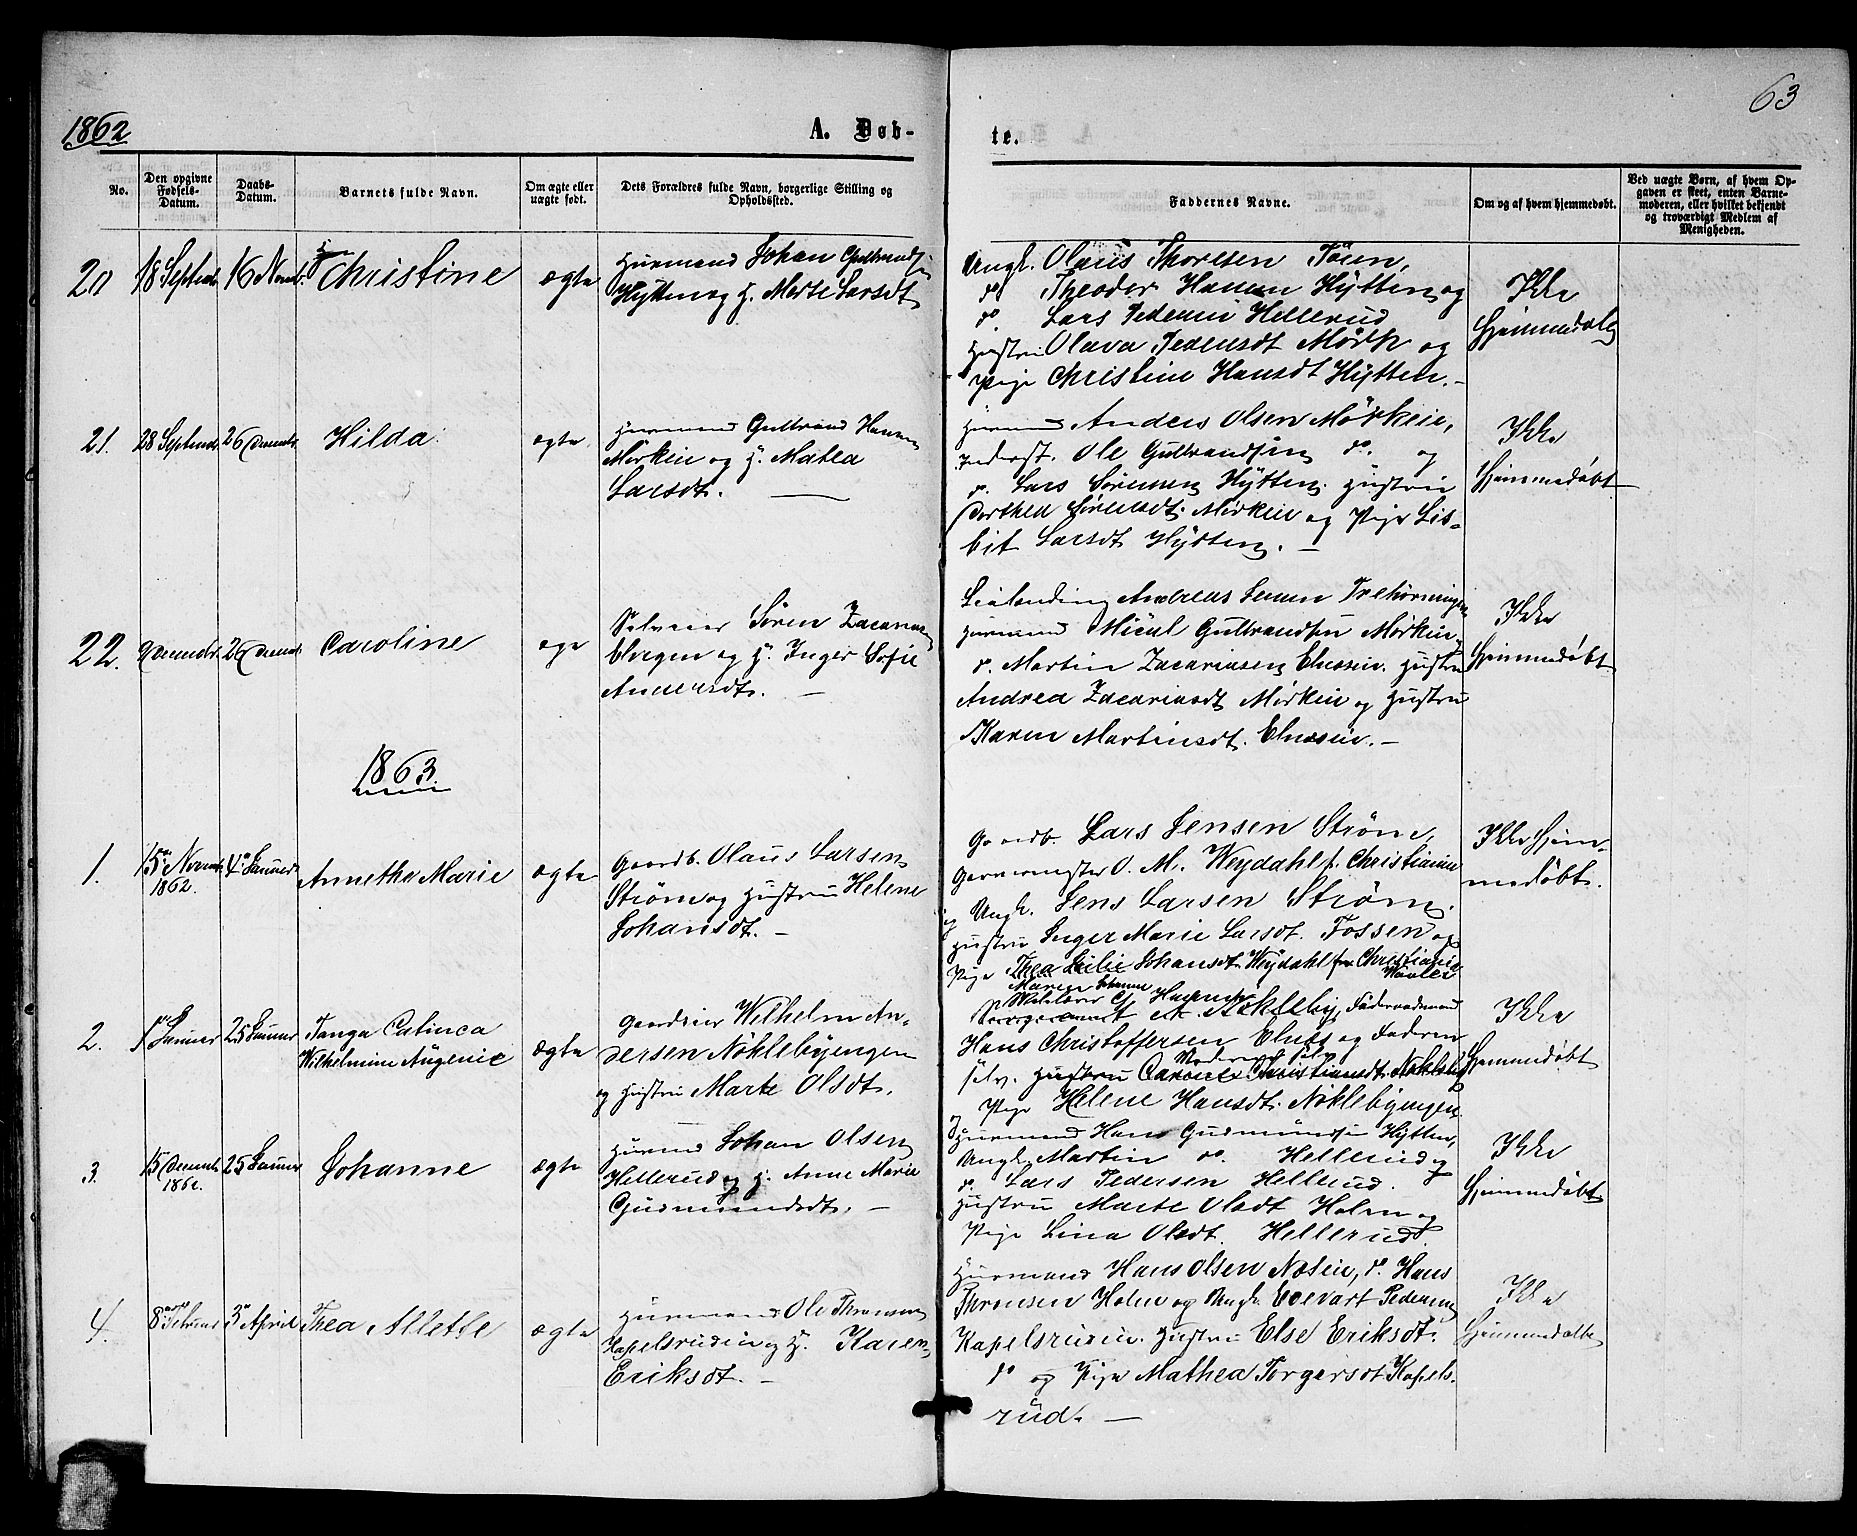 1862
A. Døb-
te.
63
No.
Den opgivne
Fødsels-
Datum.
Daabs-
Datum.
Barnets fulde Navn.
Om ægte eller
uægte født.
Dets Forældres fulde Navn, borgerlige Stilling og
Opholdssted.
Faddernes Navne.
Om og af hvem hjemmedøbt.
Ved uægte Børn, af hvem Op-
gaven er skeet, enten Barne-
moderen, eller hvilket bekjendt
og troværdigt Medlem af
Menigheden.
20
18 Septembr
16 Novbr.
Christine
ægte
Huusmand Johan Gulbrands.
Hytten og H. Marte Larsdt
Ungk. Olaus Thoresen
do Theodor Hansen Hytten og
do. Lars Pedersen Hellerud
Hustru Olava Pedersdt Mørk og
Pige Christine Hansdt Hytten.-
Ikke
Hjemmedøbt
21.
28 Septembr
26 Decembr.
Hilda
ægte
Huusmand Gulbrand Hansen
Mørkeie og H. Mathea
Larsdt.
Huusmand Anders Olsen Mørkeie,
Inderst. Ole Gulbrandsen do. og
do. Lars Sørensen Hytten. Hustru
Dorthea Sørensdt. Mørkeie og Pige Lis-
bet Larsdt Hytten. -
Ikke
Hjemmedøbt
22.
26 Decembr.
Caroline
ægte
Selveier Søren Zacarias.
og H. Inger Sofie
Andersdt. -
Andreas Trehørningen
Huusmand Gulbrandsen Mørkeie
do. Martin Zacariasen Hustru
Andrea Zacariasdt Mørkeie og Hustru
Karen Martinsdt. -
Ikke
Hjemmedøbt
1863
1.
15de Novembr
1862.
4de Januar
Annetha Marie
ægte
Gaardb. Olaus Larsen
Strøm og Hustru Helene
Johansdt. -
Gaardb. Lars Jensen Strøm,
Garvermester O. M. Weydahl f. Christiania
og Ungk. Jens Larsen Strøm.
Hustru Inger Marie Larsdt. Fossen og
Pige Thea Johansdt. Weydahl fra Christiania
Ikke Hjem-
medøbt.
2.
1ste Januar
25 Januar
Tanga Catinca
Wilhelmine Augenie
ægte
Gaardeier Wilhelm An-
dersen Nøklebyengen
og Hustru Marte Olsdt.
Maren Johanne
Nøkleby,
Hans Christoffersen og Faderen
selv. Hustru Christiansdt. Nøkleby
og Pige Helene Hansdt. Nøklebyengen
Ikke
Hjemmedøbt
3.
15 Decembr
1862.
25 Januar
Johanne
ægte
Huusmand Johan Olsen
Hellerud og H. Anne Marie
Gudmundsdt. -
Huusmand Hans Gudmundsen Hytten,
Ungk. Martin do. Hellerud og
do. Lars Pedersen Hellerud.
Hustru Marte Olsdt Holm og
Pige Lina Olsdt. Hellerud.
Ikke
Hjemmedøbt
4.
8de Februar
3de April
Thea Allette
ægte
Huusmand Ole Thronsen
Kapelsrudeie og H. Karen
Eriksdt. -
Huusmand Hans Olsen Næseie, do. Hans
Thronsen Holm og Ungk. Edevart Pedersen
Kapelsrudeie. Hustru Else Eriksdt.
do og Pige Mathea Torgersdt Kapels-
rud. -
Ikke
Hjemmedøbt